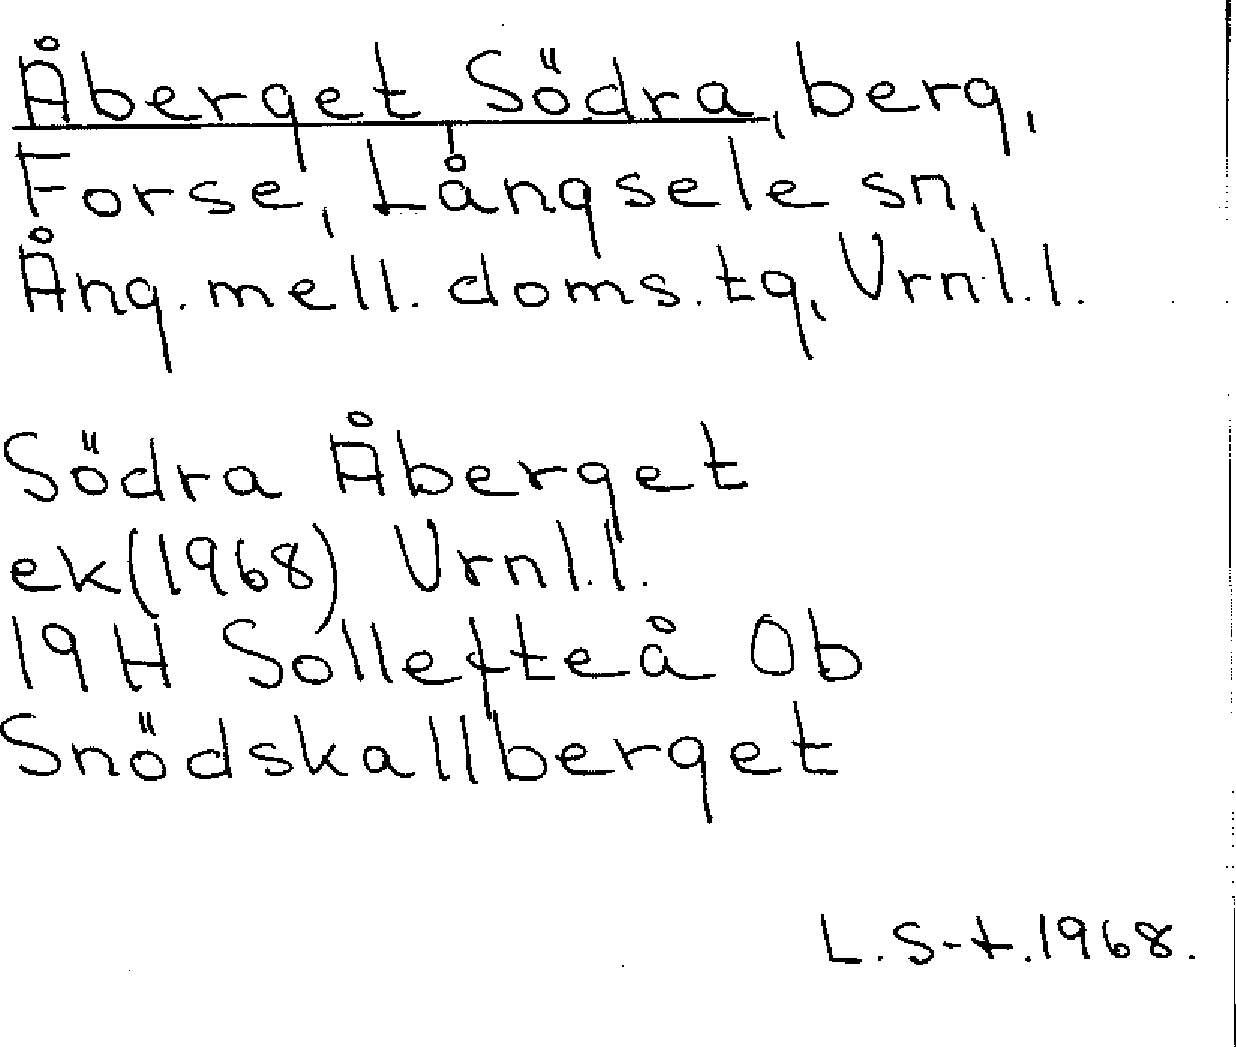 Åberget Södra, berg,
Forse, Långsele sn,
Ång.mell.doms.tg, Vrnl.l.
Södra Åberget
ek(1968) Vrnl.l.
19 H Sollefteå Ob
Snödskallberget
L.S-t.1968.